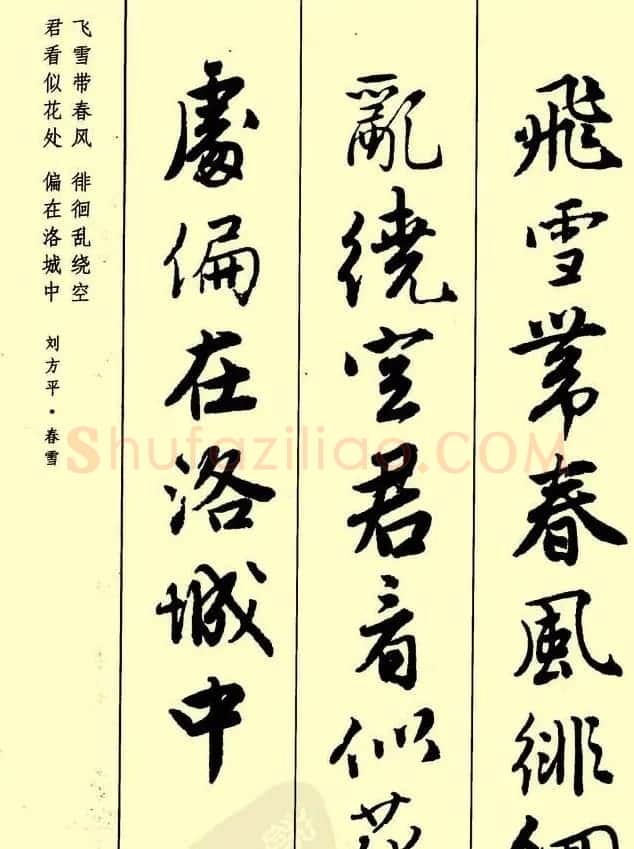 飛雪带春風徘徊
亂繞空君看似花
處偏在洛城中
飞雪带春风 徘徊乱绕空
君看似花处 偏在洛城中
刘方平·春雪
Shufaziliao.COM